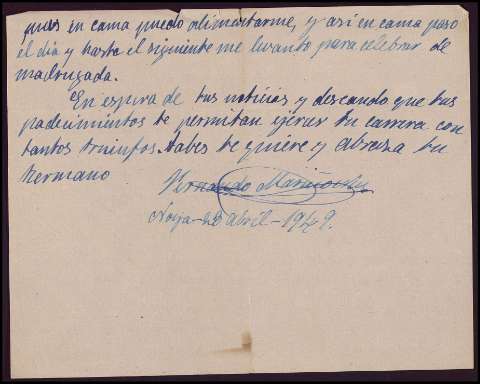 pues en cama puedo alimentarme, y así en cama paso
el dia y hasta el siguiente me levanto para celebrar de
madrugada.
En espera de tus noticias y deseando que tus
padecimientos te permitan ejercer tu carrera con
tantos triunfos. Sabes te quiere y abraza tu
hermano
Fernando
Noya - 28 abril - 1949.